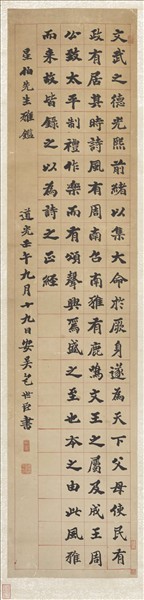 文武之德光熙前緒以集大命於厥身遂為天下父母使民有
政有居其時詩風有周南召南雅有鹿鳴文王之屬及成王周
公致太平制禮作樂而有頌聲興焉盛之至也本之由此風雅
而来故皆錄之以為詩之正經
星伯先生雅鑑
道光壬午九月十九日安吴包世臣書